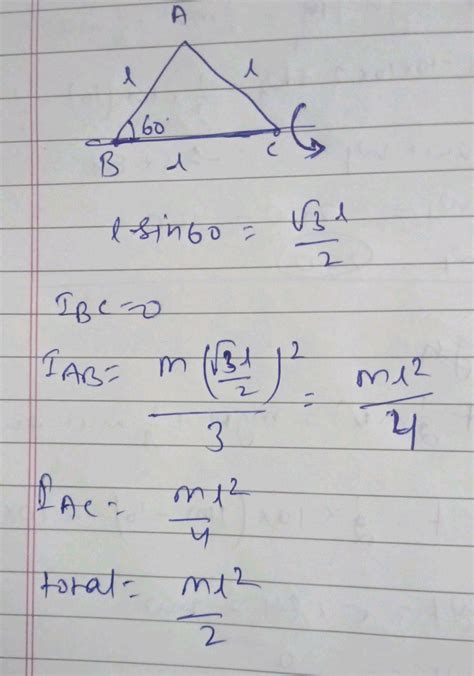 A
l l
60°
B l C
l sin60 = √3l/2
I_BC = 0
I_AB = m(√3l/2)²/3 = ml²/4
I_AC = ml²/4
total = ml²/2